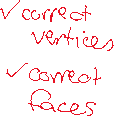 ✓correct
vertices
✓correct
faces